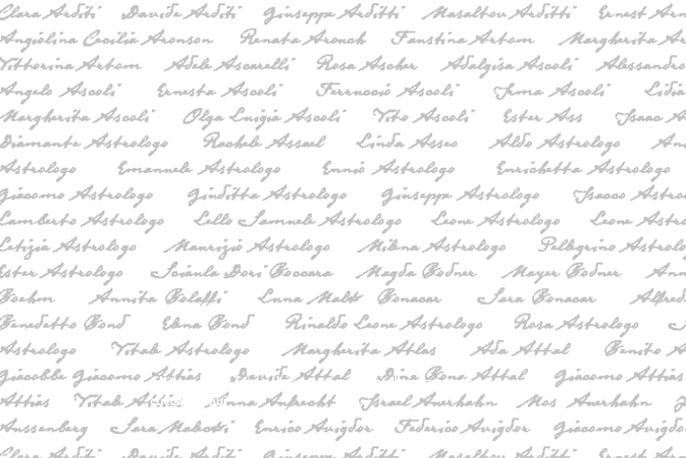 Clara Arditi Davide Arditi Giuseppe Arditti Masaltov Arditti Ernest Arn
Angiolina Cecilia Aronson Renata Aronoh Faustina Artom Margherita Ar
Vittorina Artom Adele Ascarelli Rosa Ascher Adalgisa Ascoli Alessandro
Angelo Ascoli Ernesta Ascoli Ferruccio Ascoli Irma Ascoli Lidia
Margherita Ascoli Olga Luigia Ascoli Vito Ascoli Ester Ass Isaac A
Diamante Astrologo Rachele Assael Linda Asseo Aldo Astrologo An
Astrologo Emanuele Astrologo Ennio Astrologo Enrichetta Astrologo
Giacomo Astrologo Giuditta Astrologo Giuseppe Astrologo Isacco Astro
Lamberto Astrologo Lello Samuele Astrologo Leone Astrologo Leone Astro
Letizia Astrologo Maurizio Astrologo Milena Astrologo Pellegrino Astrolo
Ester Astrologo Dori Boccara Magda Bodner Mayer Bodner Ann
Boehm Annita Bolaffi Luna Bonacar Sara Bonacar Alfred
Benedetto Bond Elena Bond Rinaldo Leone Astrologo Rosa Astrologo S
Astrologo Vitale Astrologo Margherita Atlas Ada Attal Benito A
Giacobbe Giacomo Attias Davide Attal Dina Bona Attal Giacomo Attias
Attias Vitale Anna Aufrecht Israel Auerhahn Mos Auerhahn
Aussenberg Sara Enrico Avigdor Federico Avigdor Giacomo Avigdo
Clara Arditi Davide Arditi Giuseppe Arditti Masaltov Arditti Ernest Arn